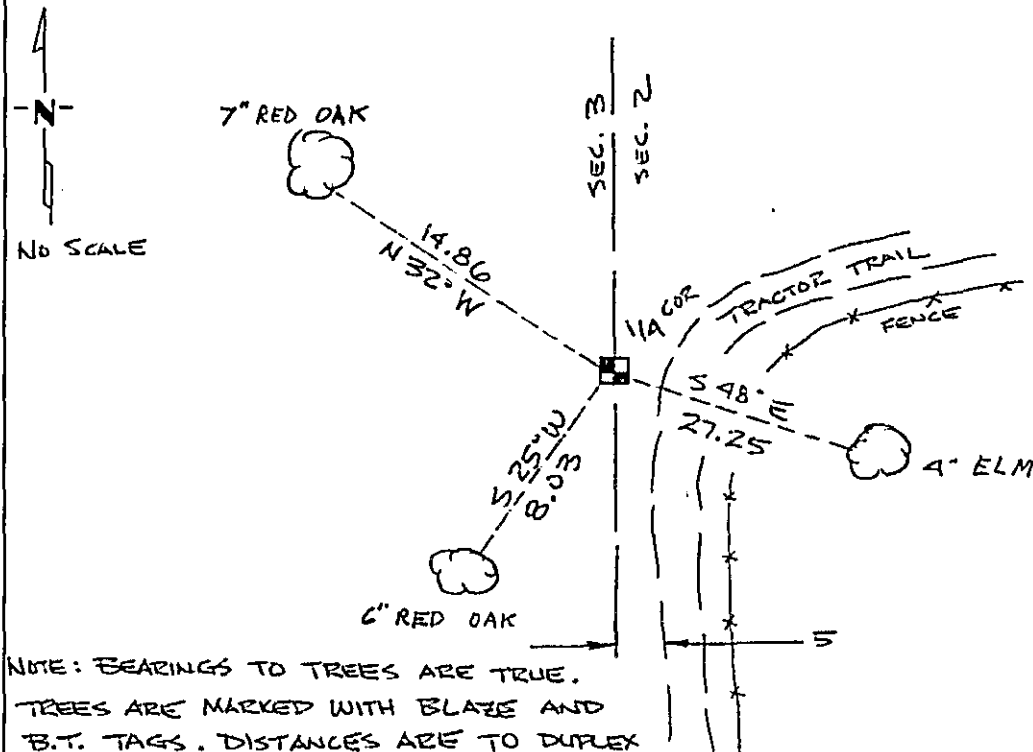 N
NO SCALE
7" RED OAK
14.86
N 32° W
SEC. 3
SEC. 2
1/4 COR
TRACTOR TRAIL
FENCE
S 48° E
27.25
4" ELM
S 25° W
8.03
6" RED OAK
5
NOTE: BEARINGS TO TREES ARE TRUE.
TREES ARE MARKED WITH BLAZE AND
B.T. TAGS. DISTANCES ARE TO DUPLEX